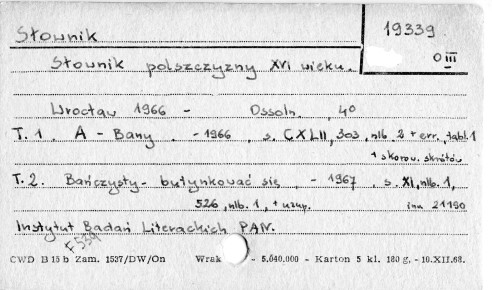 Słownik 19339
Słownik polszczyzny XVI wieku. 0 III
Wrocław 1966 - Ossoln. 4°
T. 1. A - Bany - 1966, s. CXLII, 303, nlb. 2 + err., tabl. 1
+ skorow. skrótów
T. 2. Bańczysty - butynkować się, - 1967, s. XI, nlb. 1,
526, nlb. 1, + uzup. inw 21190
Instytut Badań Literackich PAN.
F 559
CWD B 15 b Zam. 1537/DW/On Wrak - 5.040.000 - Karton 5 kl. 180 g, - 10.XII.68.